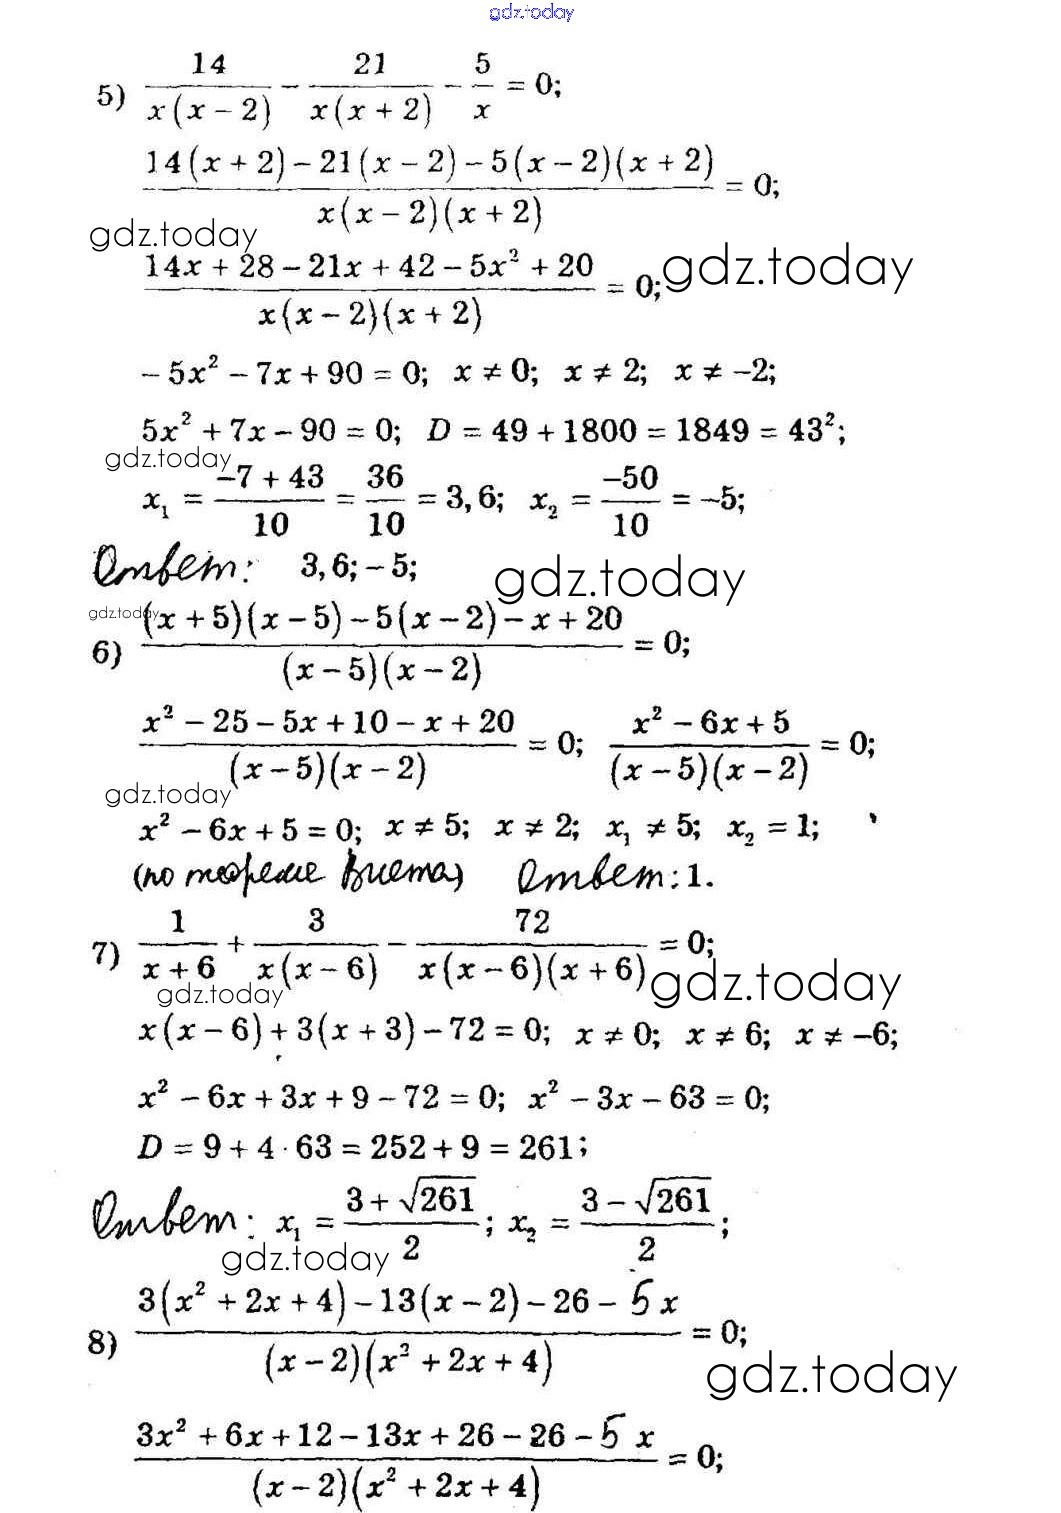 gdz.today
5) 14/(x(x − 2)) − 21/(x(x + 2)) − 5/x = 0;
(14(x + 2) − 21(x − 2) − 5(x − 2)(x + 2))/(x(x − 2)(x + 2)) = 0;
gdz.today
(14x + 28 − 21x + 42 − 5x² + 20)/(x(x − 2)(x + 2)) = 0; gdz.today
− 5x² − 7x + 90 = 0; x ≠ 0; x ≠ 2; x ≠ −2;
5x² + 7x − 90 = 0; D = 49 + 1800 = 1849 = 43²;
gdz.today
x₁ = (−7 + 43)/10 = 36/10 = 3,6; x₂ = −50/10 = −5;
Ответ: 3,6; − 5; gdz.today
gdz.today
6) ((x + 5)(x − 5) − 5(x − 2) − x + 20)/((x − 5)(x − 2)) = 0;
(x² − 25 − 5x + 10 − x + 20)/((x − 5)(x − 2)) = 0; (x² − 6x + 5)/((x − 5)(x − 2)) = 0;
gdz.today
x² − 6x + 5 = 0; x ≠ 5; x ≠ 2; x₁ ≠ 5; x₂ = 1;
(по теореме Виета) Ответ: 1.
7) 1/(x + 6) + 3/(x(x − 6)) − 72/(x(x − 6)(x + 6)) = 0; gdz.today
gdz.today
x(x − 6) + 3(x + 3) − 72 = 0; x ≠ 0; x ≠ 6; x ≠ −6;
x² − 6x + 3x + 9 − 72 = 0; x² − 3x − 63 = 0;
D = 9 + 4 · 63 = 252 + 9 = 261;
Ответ: x₁ = (3 + √261)/2; x₂ = (3 − √261)/2;
gdz.today
8) (3(x² + 2x + 4) − 13(x − 2) − 26 − 5x)/((x − 2)(x² + 2x + 4)) = 0;
gdz.today
(3x² + 6x + 12 − 13x + 26 − 26 − 5x)/((x − 2)(x² + 2x + 4)) = 0;